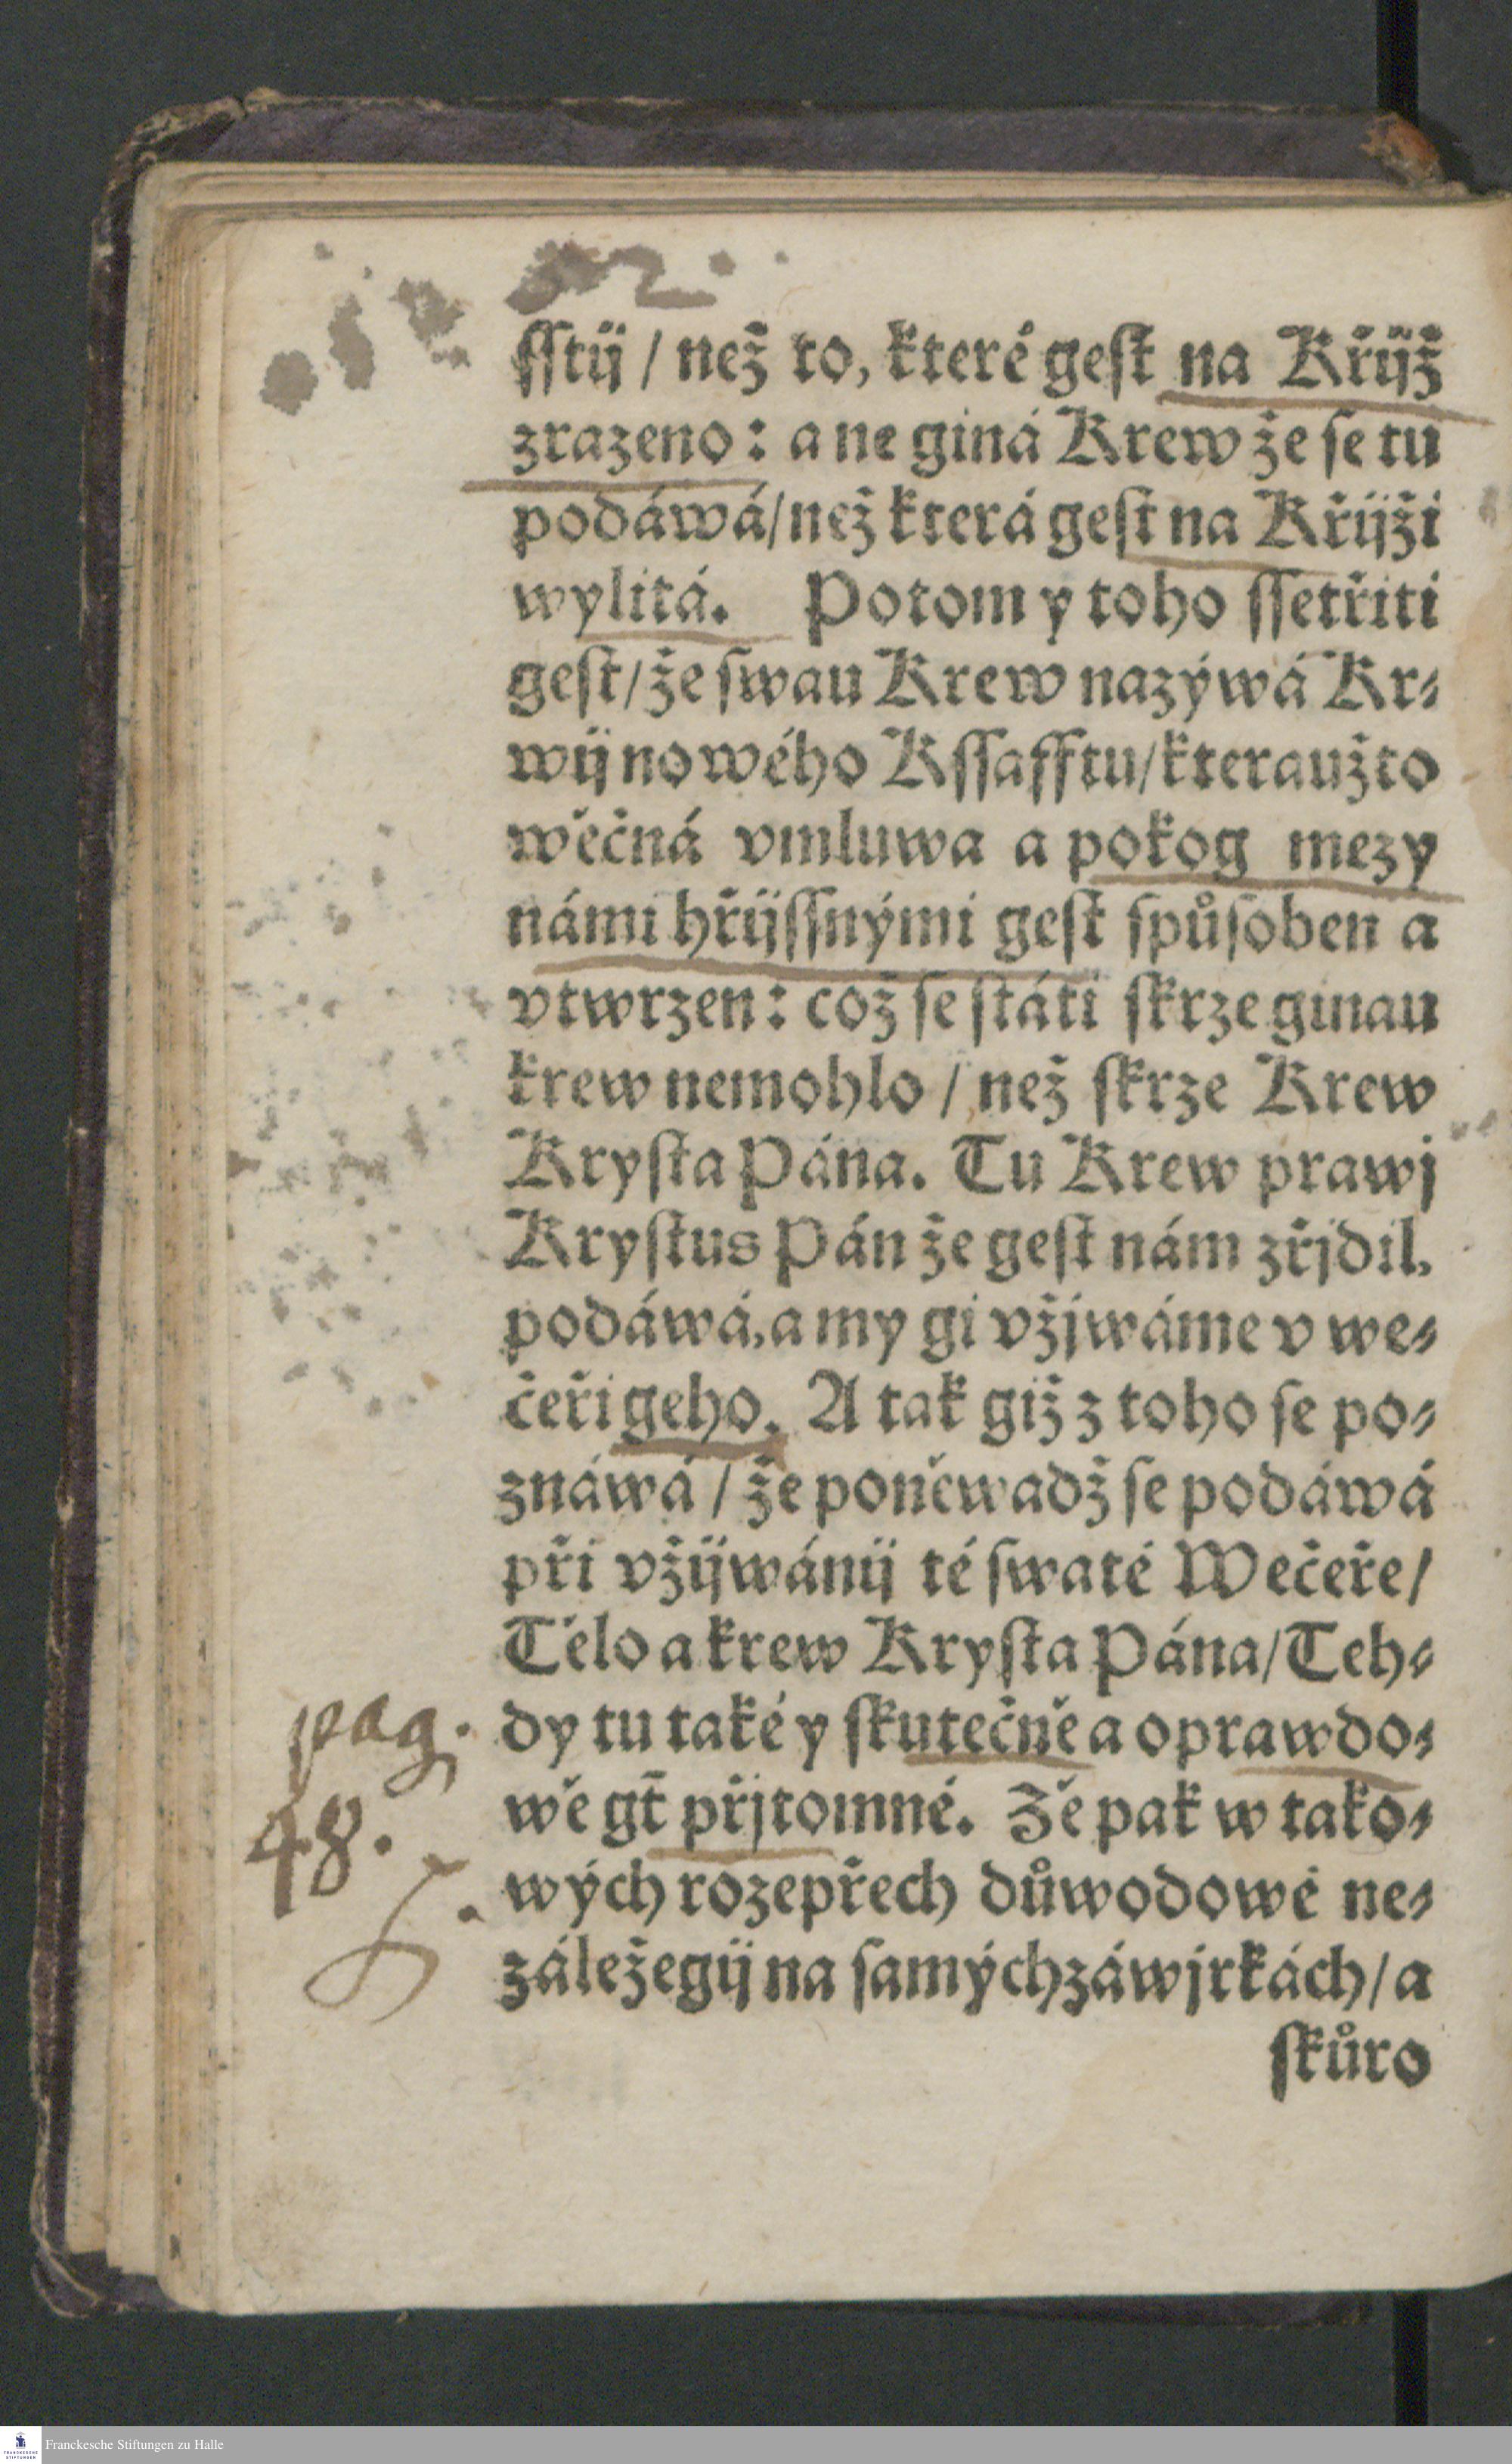 ſſtij / než to, které geſt na Křijž
zrazeno: a ne giná Krew že ſe tu
podáwá / než která geſt na Křijži
wylitá. Potom y toho ſſetřiti
geſt / že ſwau Krew nazýwá Kr⸗
wij nowého Kſſafftu / kteraužto
wěčná vmluwa a pokog mezy
námi hřijſſnými geſt ſpůſoben a
vtwrzen: což ſe ſtáti ſkrze ginau
krew nemohlo / než ſkrze Krew
Kryſta Pána. Tu Krew prawj
Kryſtus Pán že geſt nám zřjdil,
podáwá, a my gi vžjwáme v we⸗
čeři geho. A tak giž z toho ſe po⸗
znáwá / že poněwadž ſe podáwá
při vžijwánij té ſwaté Wečeře /
Tělo a krew Kryſta Pána / Teh⸗
dy tu také y ſkutečně a oprawdo⸗
wě gt̃ přjtomné. Zě pak w tako⸗
wých rozepřech důwodowé ne⸗
záležegij na ſamých záwjrkách / a
ſkůro
pag.
48.
Franckesche Stiftungen zu Halle